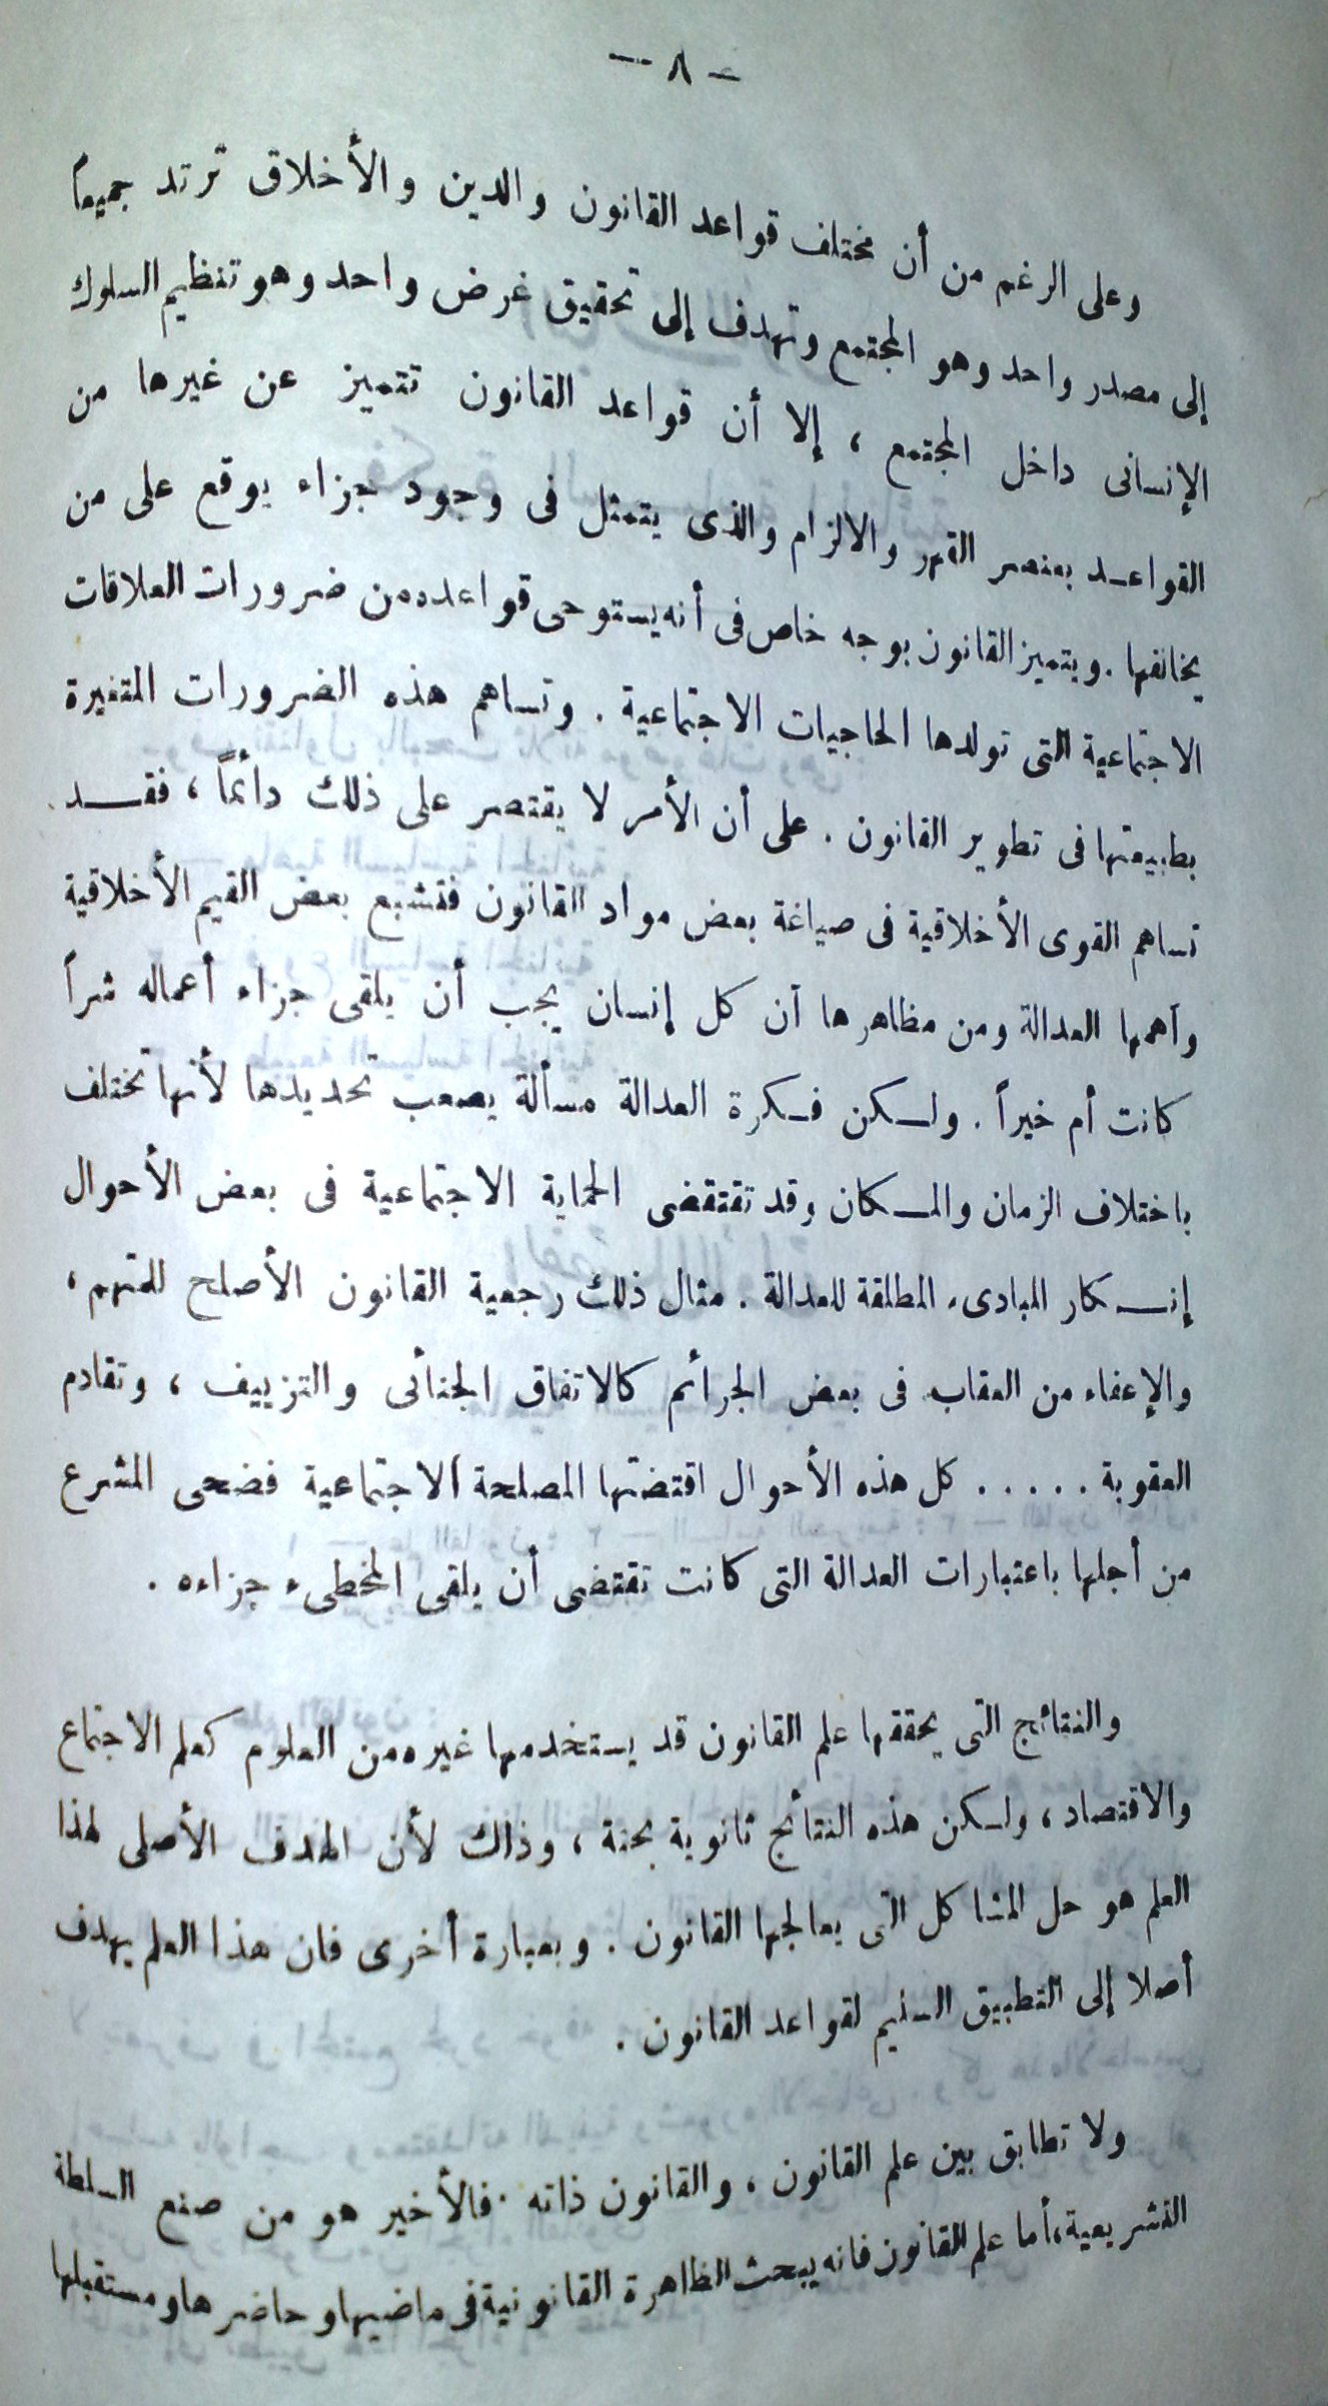 — ٨ —
وعلى الرغم من أن مختلف قواعد القانون والدين والأخلاق ترتد جميعاً
إلى مصدر واحد وهو المجتمع وتهدف إلى تحقيق غرض واحد وهو تنظيم السلوك
الإنسانى داخل المجتمع ، إلا أن قواعد القانون تتميز عن غيرها من
القواعد بعنصر القهر والالزام والذى يتمثل فى وجود جزاء يوقع على من
يخالفها . ويتميز القانون بوجه خاص فى أنه يستوحى قواعده من ضرورات العلاقات
الاجتماعية التى تولدها الحاجيات الاجتماعية . وتساهم هذه الضرورات المتغيرة
بطبيعتها فى تطوير القانون . على أن الأمر لا يقتصر على ذلك دائماً ، فقد
تساهم القوى الأخلاقية فى صياغة بعض مواد القانون فتشبع بعض القيم الأخلاقية
وأهمها العدالة ومن مظاهرها أن كل إنسان يجب أن يلقى جزاء أعماله شراً
كانت أم خيراً . ولكن فكرة العدالة مسألة يصعب تحديدها لأنها تختلف
باختلاف الزمان والمكان وقد تقتضى الحماية الاجتماعية فى بعض الأحوال
إنكار المبادىء المطلقة للعدالة . مثال ذلك رجعية القانون الأصلح للمتهم ،
والإعفاء من العقاب فى بعض الجرائم كالاتفاق الجنائى والتزييف ، وتقادم
العقوبة . . . . . كل هذه الأحوال اقتضتها المصلحة الاجتماعية فضحى المشرع
من أجلها باعتبارات العدالة التى كانت تقتضى أن يلقى المخطىء جزاءه .
والنتائج التى يحققها علم القانون قد يستخدمها غيره من العلوم كعلم الاجتماع
والاقتصاد ، ولكن هذه النتائج ثانوية بحتة ، وذلك لأن الهدف الأصلى لهذا
العلم هو حل المشاكل التى يعالجها القانون . وبعبارة أخرى فان هذا العلم يهدف
أصلا إلى التطبيق السليم لقواعد القانون .
ولا تطابق بين علم القانون ، والقانون ذاته . فالأخير هو من صنع السلطة
التشريعية ، أما علم القانون فانه يبحث الظاهرة القانونية فى ماضيها وحاضرها ومستقبلها